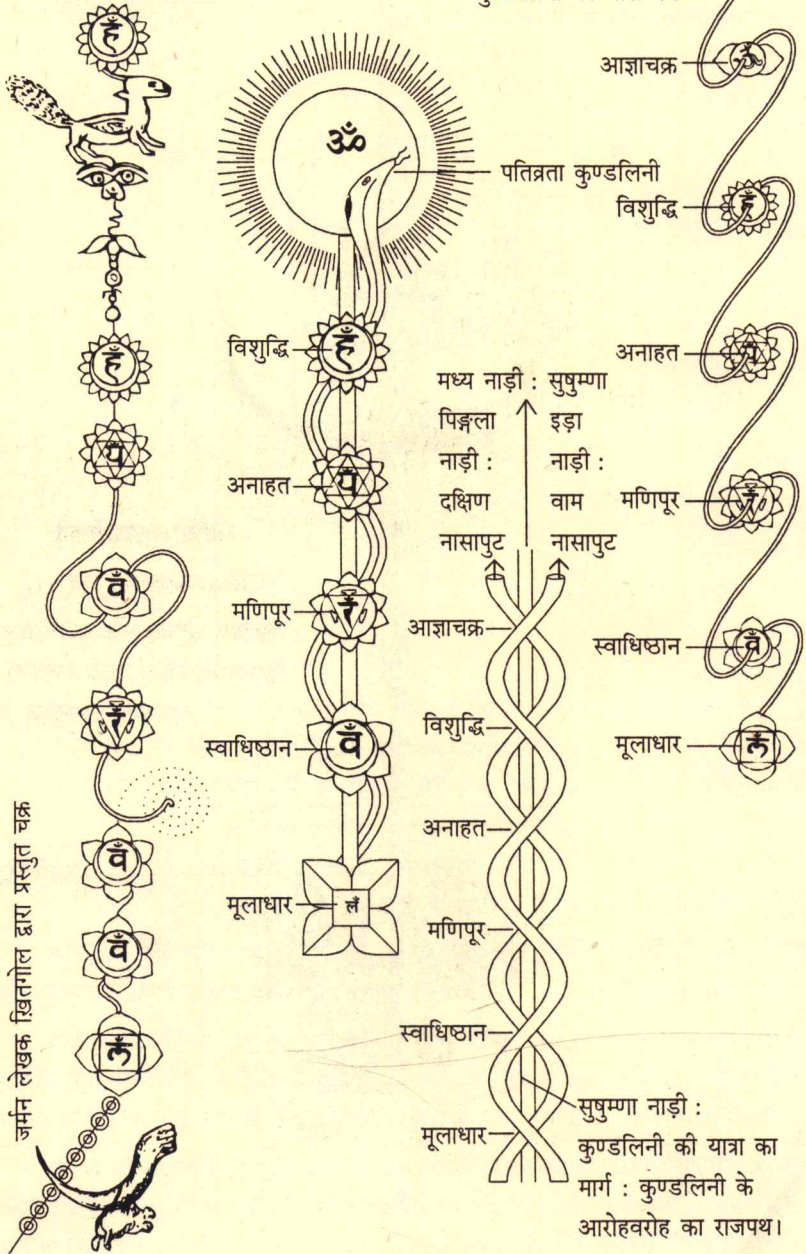 जर्मन लेखक ख़ितगोल द्वारा प्रस्तुत चक्र
हँ
हँ
यँ
वँ
रँ
वँ
वँ
लँ
ॐ
पतिव्रता कुण्डलिनी
विशुद्धि
हँ
अनाहत
यँ
मणिपूर
रँ
स्वाधिष्ठान
वँ
मूलाधार
लँ
मध्य नाड़ी : सुषुम्णा
पिङ्गला
नाड़ी :
दक्षिण
नासापुट
इड़ा
नाड़ी :
वाम
नासापुट
आज्ञाचक्र
विशुद्धि
अनाहत
मणिपूर
स्वाधिष्ठान
मूलाधार
सुषुम्णा नाड़ी :
कुण्डलिनी की यात्रा का
मार्ग : कुण्डलिनी के
आरोहवरोह का राजपथ।
आज्ञाचक्र
ॐ
विशुद्धि
हँ
अनाहत
यँ
मणिपूर
रँ
स्वाधिष्ठान
वँ
मूलाधार
लँ